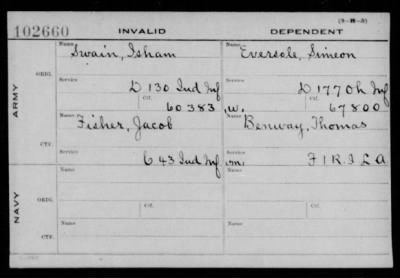 (3-H-3)
102660 INVALID DEPENDENT
Name Swain, Isham Name Eversole, Simeon
ORIG.
Service D 130 Ind Inf Service D 177 Oh Inf
Ctf. 60383 W. Ctf. 67800
ARMY
Name Fisher, Jacob Name Benway, Thomas
CTF.
Service C 43 Ind Inf m. Service F 1 R. I. L A
Name Name
ORIG.
Ctf. Ctf.
NAVY
Name Name
CTF.